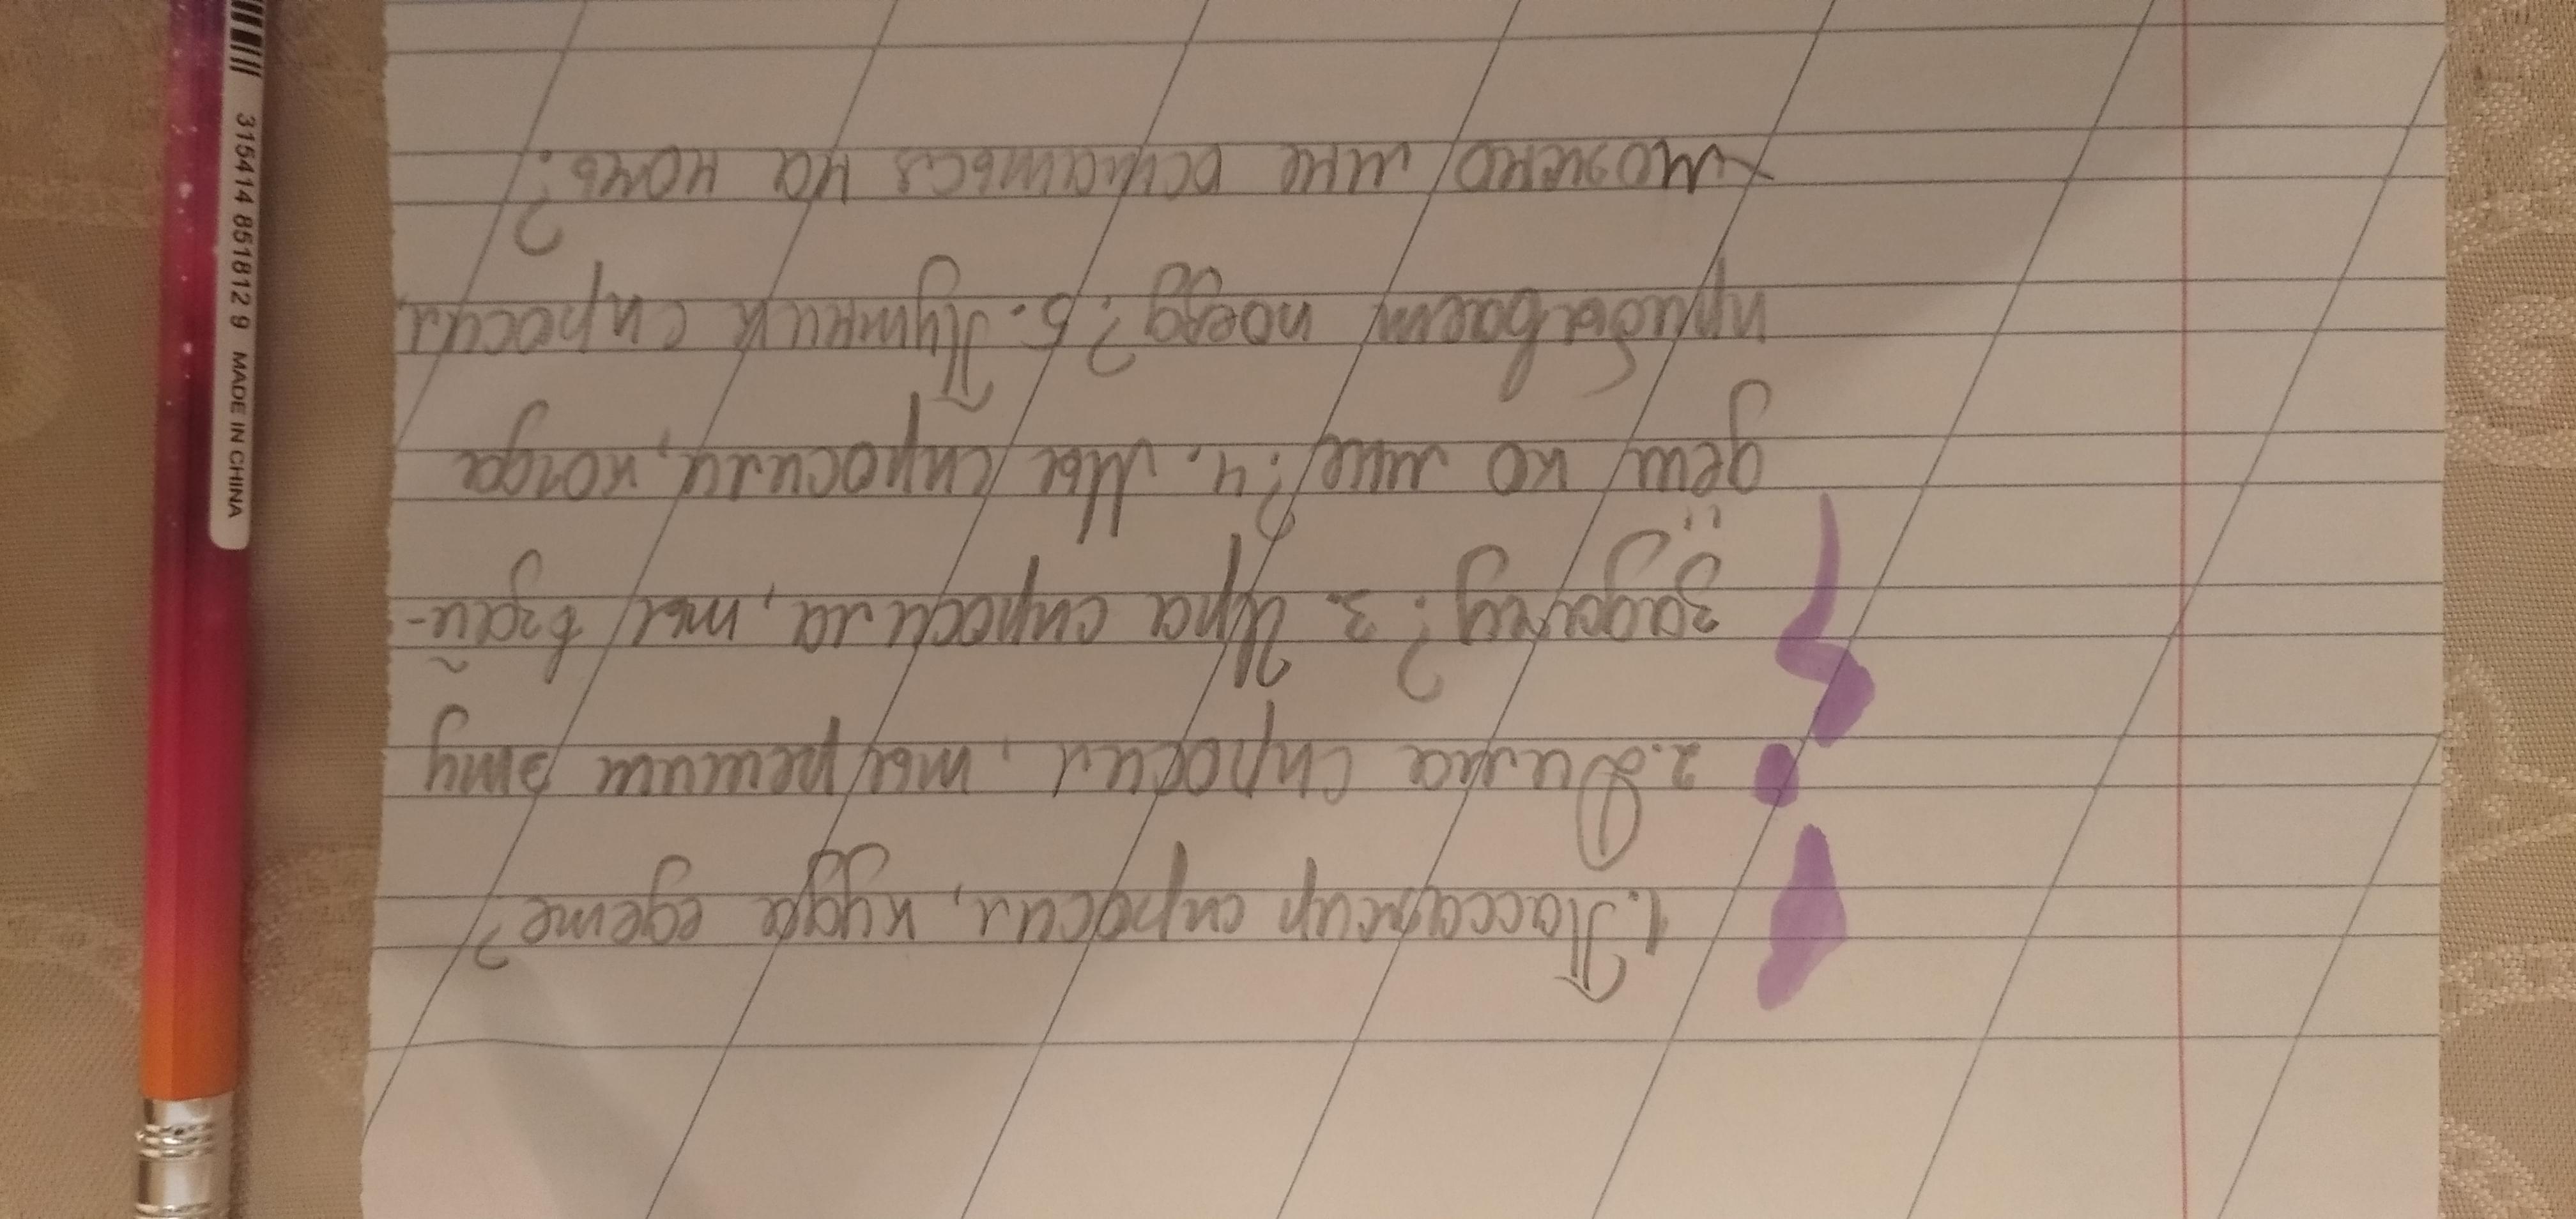 1. Пассажир спросил, куда едете?
2. Дима спросил, ты решил эту
задачу? 3. Ира спросила, ты
дёш ко мне? 4. Мы спросили, когда
прибывает поезд? 5. Путник спросил,
можно мне остаться на ночь?
315414 851812 9 MADE IN CHINA